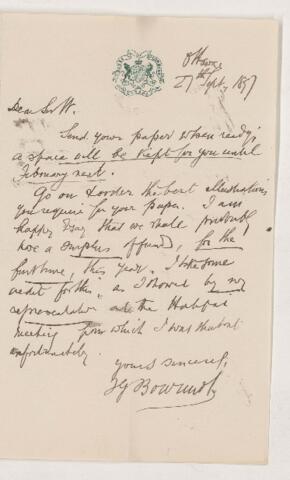 Ottawa
27th Sept, 1897
Dear Sir W.
Send your paper when ready,
a space will be kept for you until
February next.
Go on & order the best illustrations
you require for your paper. I am
happy to say that we shall probably
have a surplus of funds, for the
first time, this year. I take some
credit for this, as I showed by my
representation at the Halifax
meeting from which I was absent
unfortunately.
Yours sincerely,
J G Bourinot